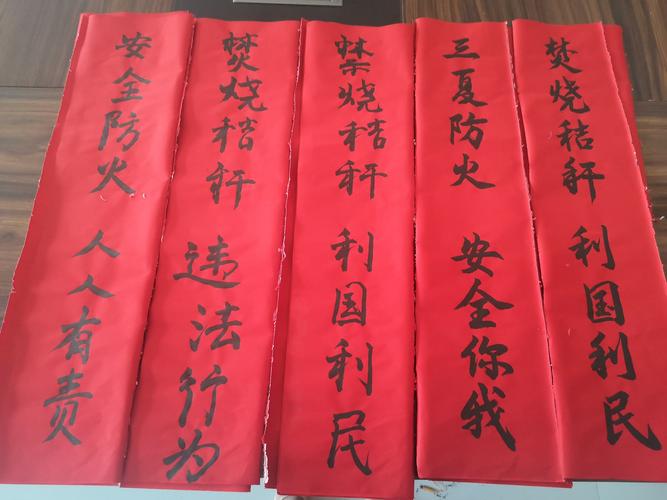 安全防火 人人有责
焚烧秸秆 违法行为
禁烧秸秆 利国利民
三夏防火 安全你我
焚烧秸秆 利国利民